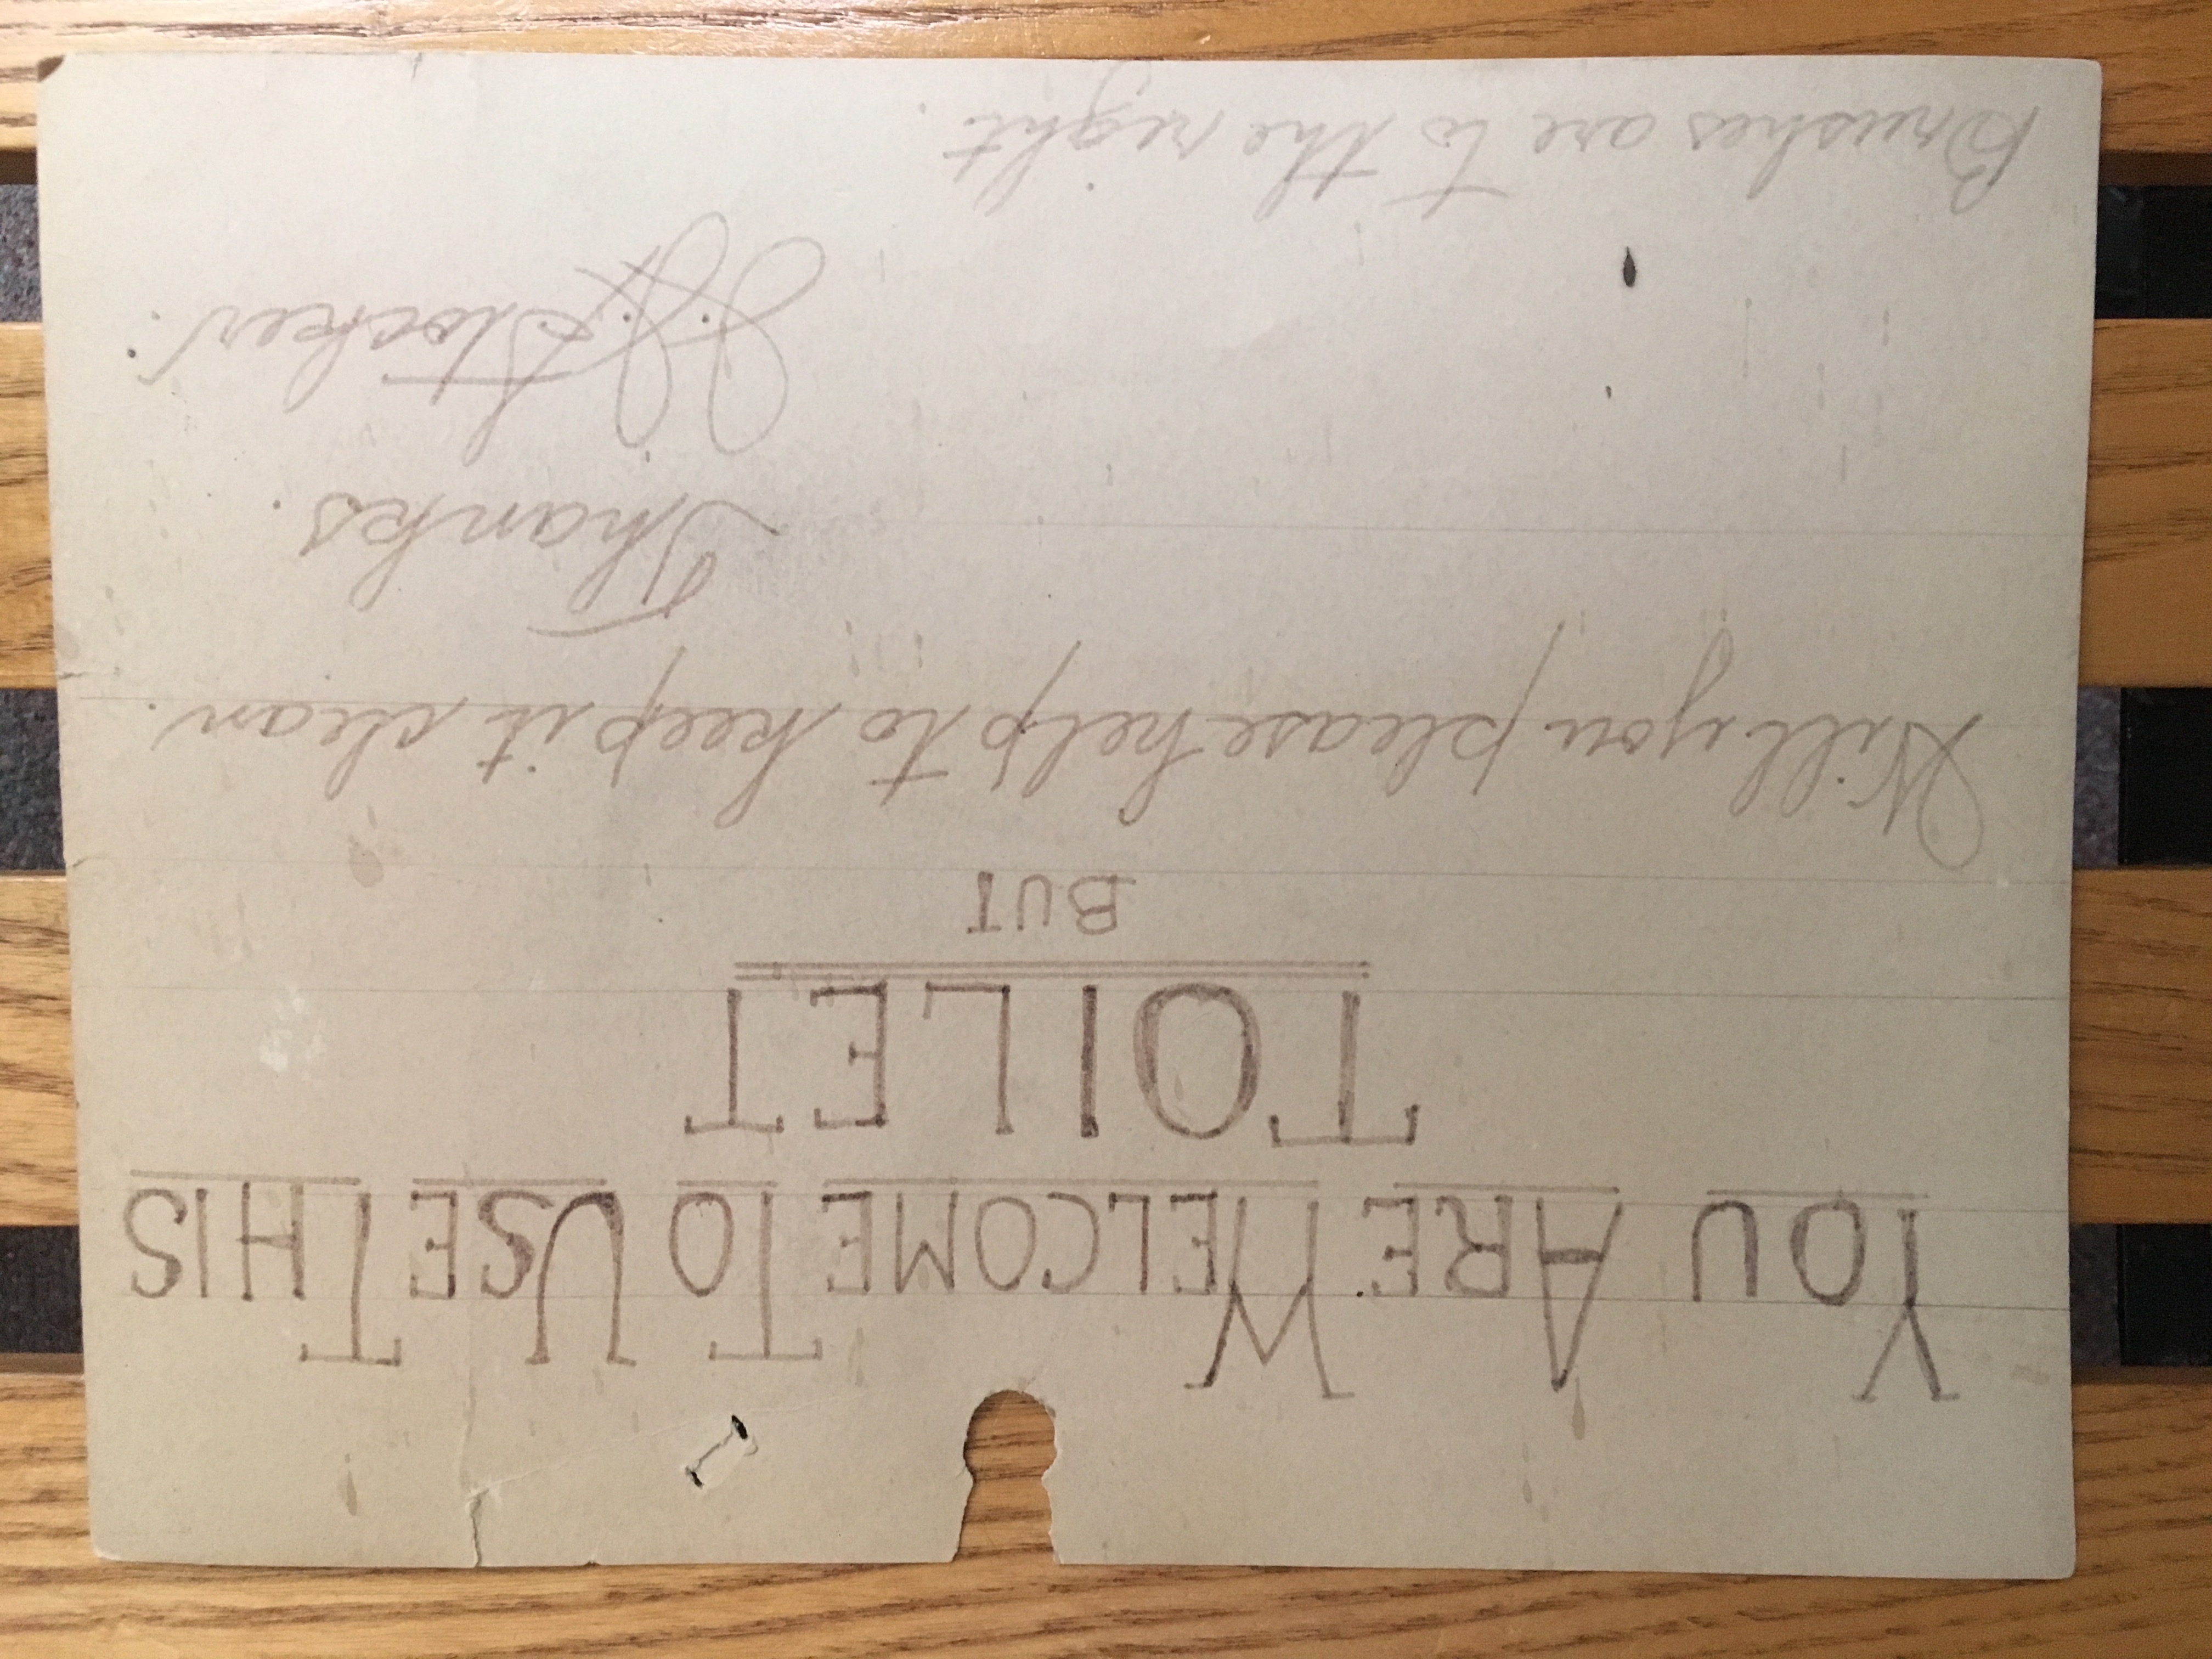 YOU ARE WELCOME TO USE THIS
TOILET
BUT
Will you please help to keep it clean.
Thanks.
J.F. Stocker.
Brushes are to the right.